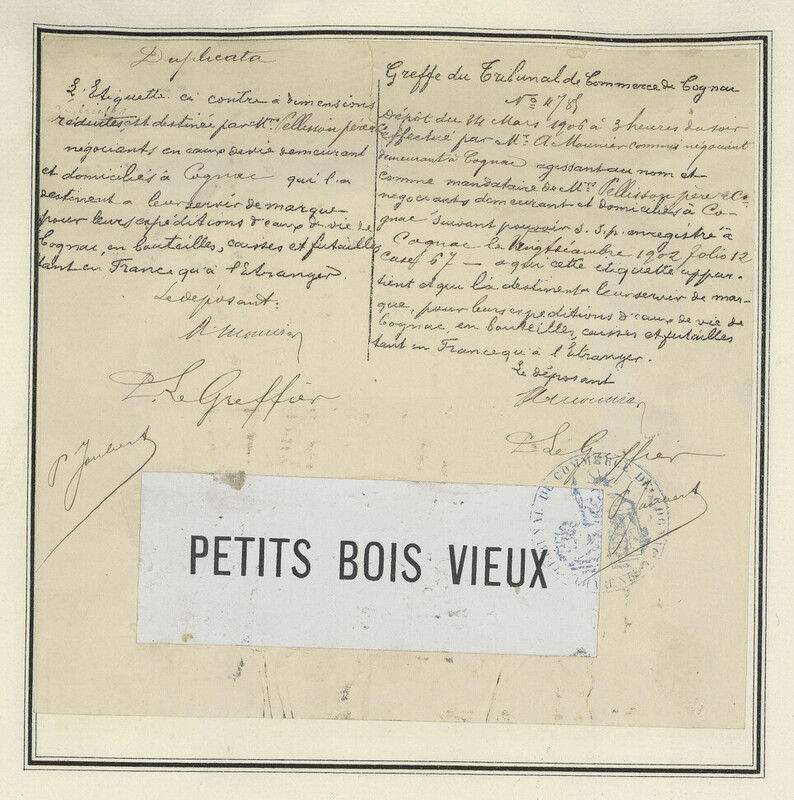 Duplicata
L'Etiquette ci contre à dimensions
réduites est destinée par Mrs Pellisson père & Co
négociants en eaux de vie demeurant
et domiciliés à Cognac qui l'a
destinent a leur servir de marque
pour leurs expéditions d'eaux de vie de
Cognac, en bouteilles, caisses et futailles
tant en France qu'à l'Etranger.
Le déposant:
A Mounier
P. Le Greffier
P. Joubert
Greffe du Tribunal de Commerce de Cognac
No 478
Dépôt du 24 Mars 1906 à 3 heures du soir
effectué par Mr. A Mounier commis négociant
demeurant à Cognac agissant au nom et
comme mandataire de Mrs Pellisson père & Co
négociants demeurant et domiciliés à Co-
gnac suivant pouvoir S. S. p. enregistré à
Cognac le vingt décembre 1902 folio 12
case 67 — a qui cette etiquette appar-
tient et qui la destinent a leur servir de mar-
que, pour leurs expéditions d'eaux de vie de
Cognac, en bouteilles, caisses et futailles
tant en France qu'à l'Etranger.
Le déposant
A Mounier
P. Le Greffier
P. Joubert
TRIBUNAL DE COMMERCE DE COGNAC
CHARENTE
PETITS BOIS VIEUX